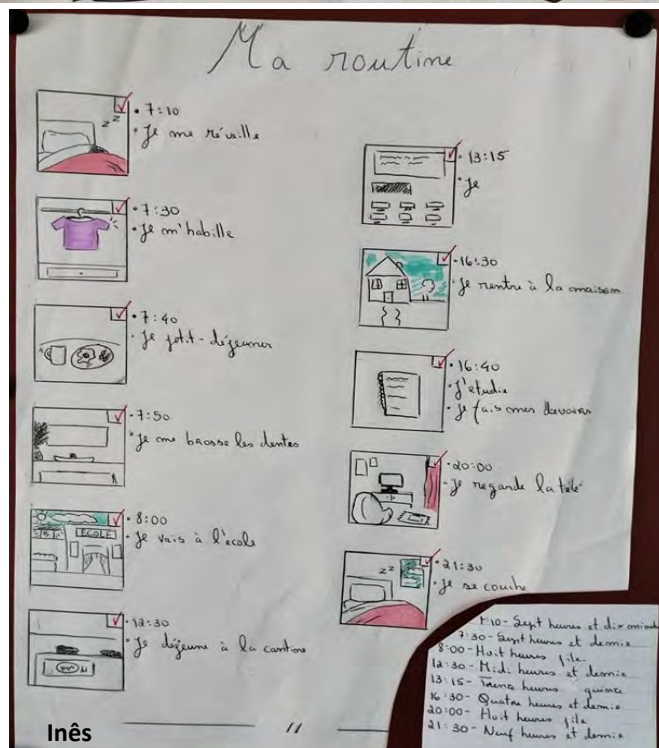 Ma routine
• 7:10
• Je me réveille
• 7:30
• Je m'habille
• 7:40
• Je ptit-déjeuner
• 7:50
• Je me brosse les dentes
ECOLE
• 8:00
• Je vais à l'ecole
• 12:30
• Je déjeune à la cantine
• 13:15
• Je
• 16:30
• Je rentre à la maison
• 16:40
• J'etudie
• Je fais mes devoirs
• 20:00
• Je regarde la télé
• 21:30
• Je se couche
7:10- Sept heures et dix minute
7:30- Sept heures et demie
8:00- Huit heures pile
12:30- Midi heures et demie
13:15- heures quinze
16:30- Quatre heures et demie
20:00- Huit heures pile
21:30- Neuf heures et demie
Inês
11